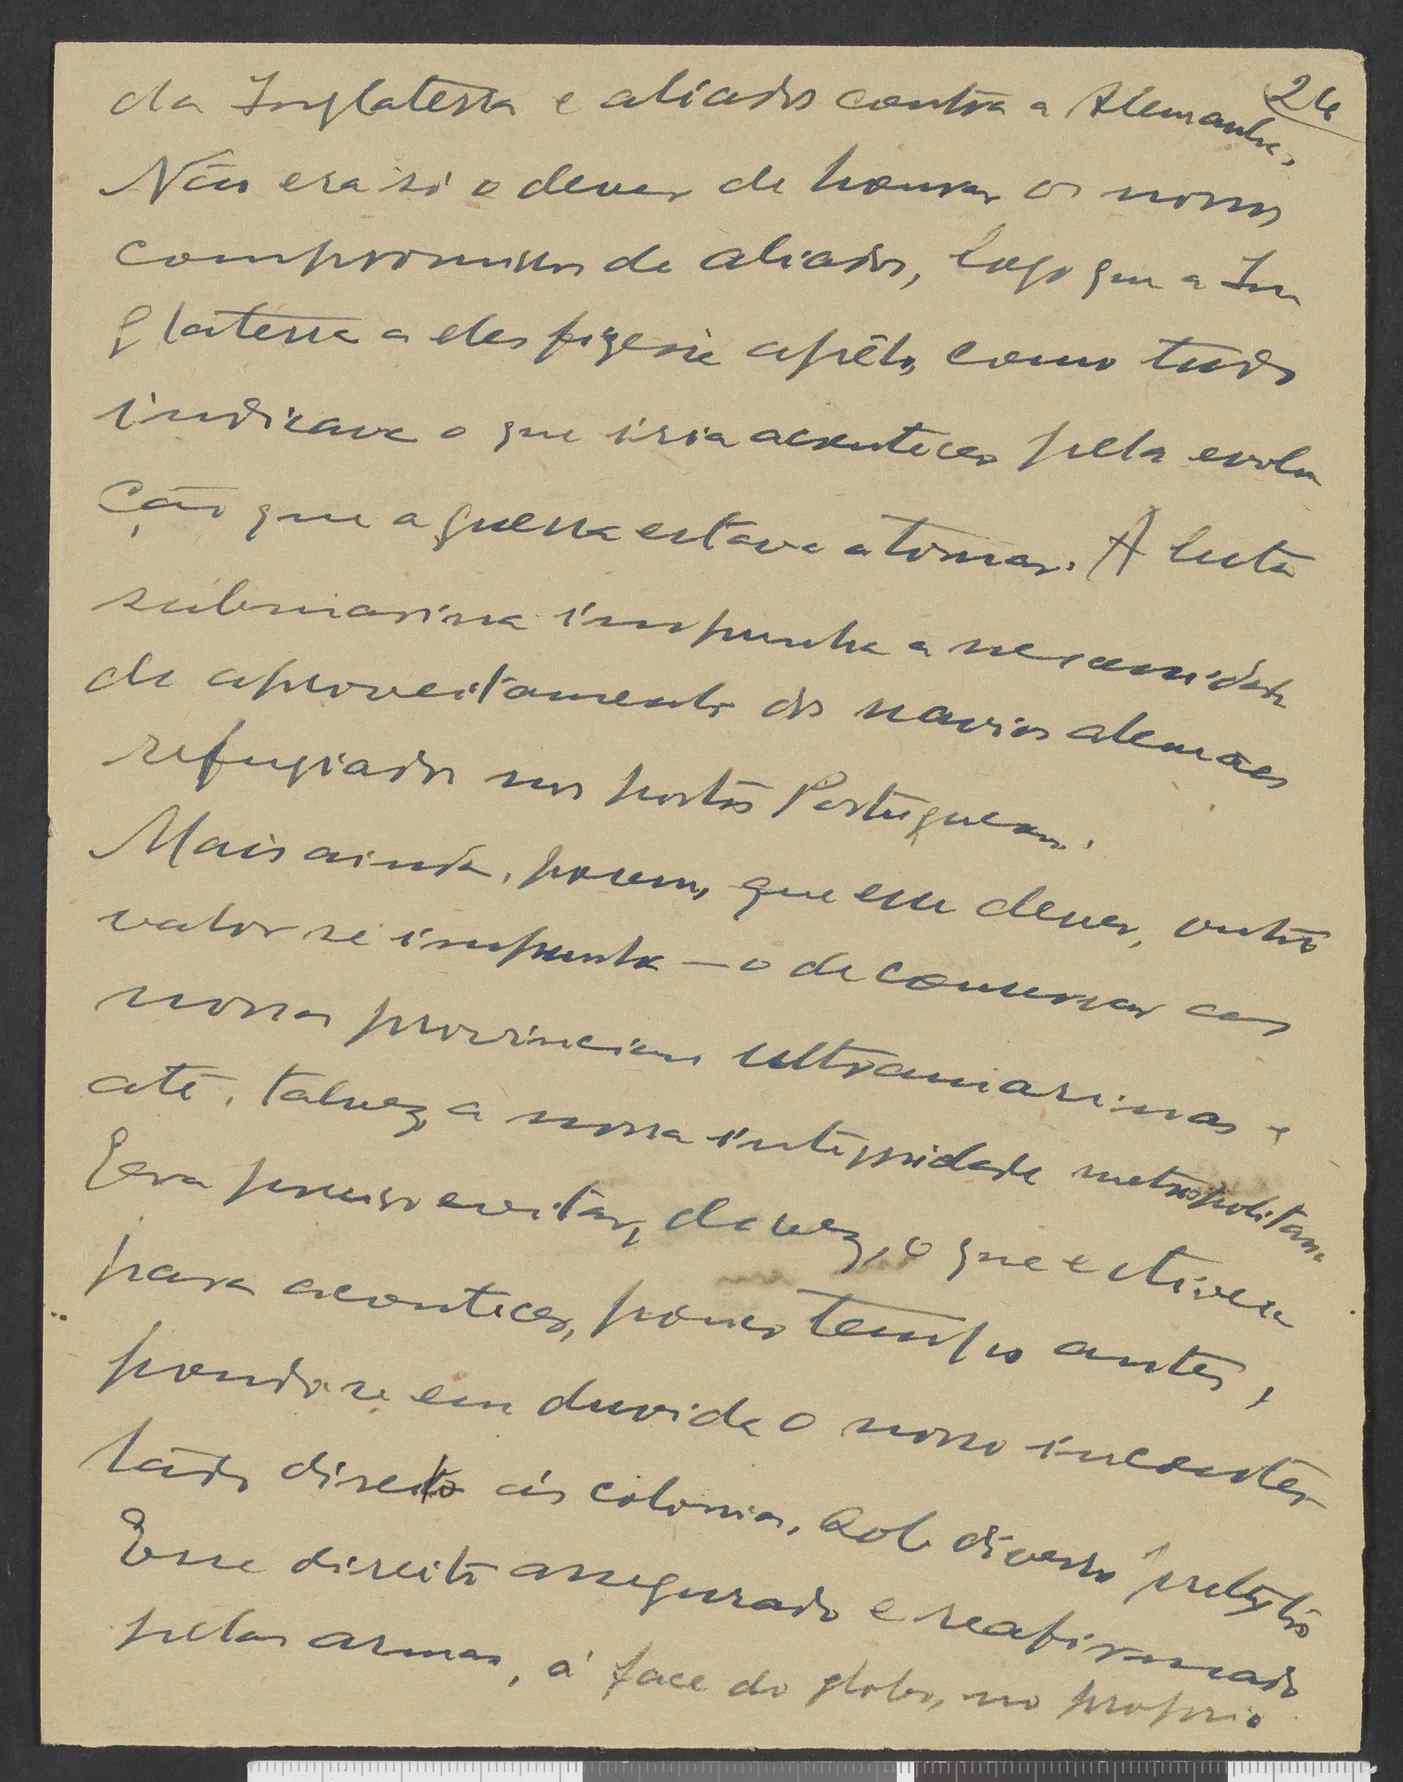 24
da Inglaterra e aliados contra a Alemanha.
Não era só o dever de honrar os nossos
compromissos de aliados, logo que a In
glaterra a eles fizesse apêlo, como tudo
indicava o que iria acontecer pela evolu
ção que a guerra estava a tomar. A luta
submarina impunha a necessidade
de aproveitamento dos navios alemães
refugiados nos portos Portugueses.
Mais ainda, porem, que esse dever, outro
valor se impunha — o de conservar as
nossas provincias ultramarinas e
até, talvez, a nossa integridade metropolitana
Era preciso evitar, de vez, o que estivera
para acontecer, pouco tempo antes,
pondo se em duvida o nosso incontes
tado direito ás colonias, sob diverso pretexto
Esse direito assegurado e reafirmado
pelas armas, á face do globo, no proprio